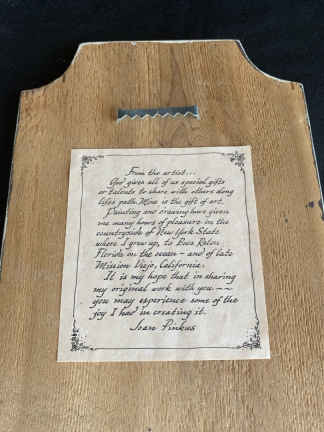 From the artist...
God given all of us special gifts
or talents to share with others along
life's path. Mine is the gift of art.
Painting and drawing have given
me many hours of pleasure in the
countryside of New York State
where I grew up, to Boca Raton,
Florida on the ocean — and of late
Mission Viejo, California.
It is my hope that in sharing
my original work with you ~~
you may experience some of the
joy I had in creating it.
Joan Pinkus